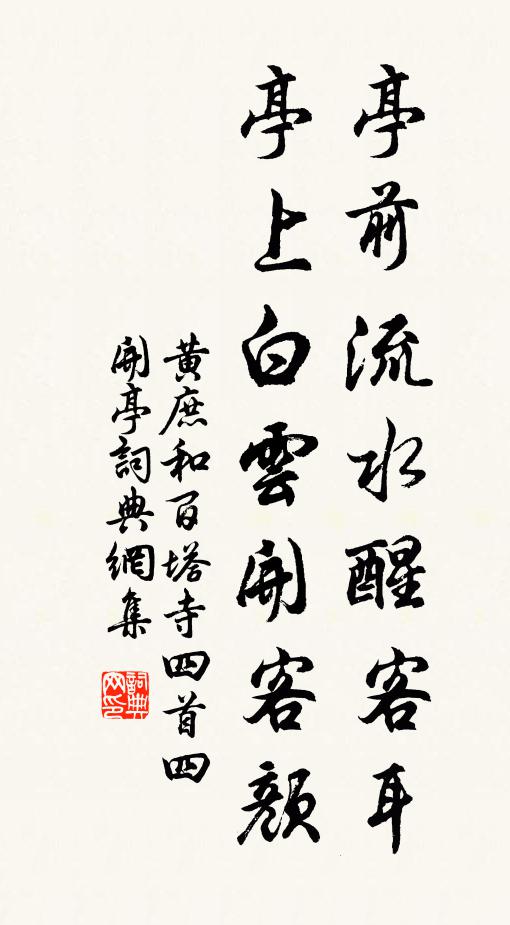 亭前流水醒客耳
亭上白雲開客顏
黃庶和百塔寺四首四
開亭詞典網集
詞典网印